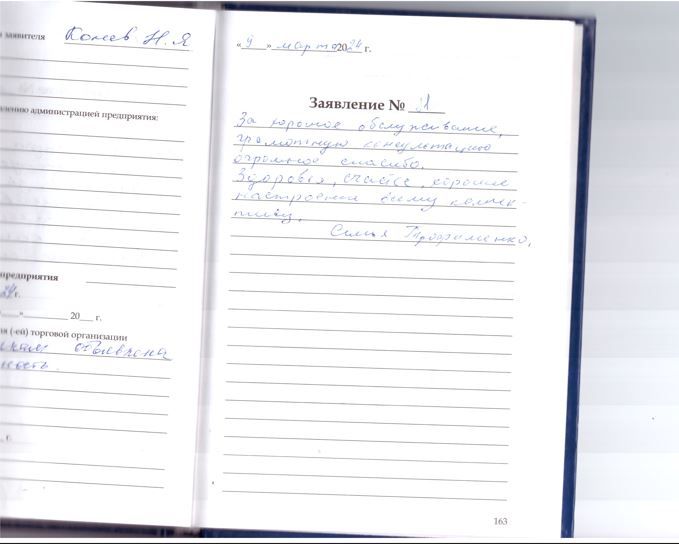 заявителя Конев Н.Я
лению администрацией предприятия:
предприятия
24 г.
» 20 г.
я (-ей) торговой организации
объявлена
ность.
г.
« 9 » марта 2024 г.
Заявление № 31
За хорошее обслуживание,
грамотную консультацию
огромное спасибо.
Здоровья, счастье, хорошие
настроения всему коллек-
тиву.
Семья Трофименко.
163